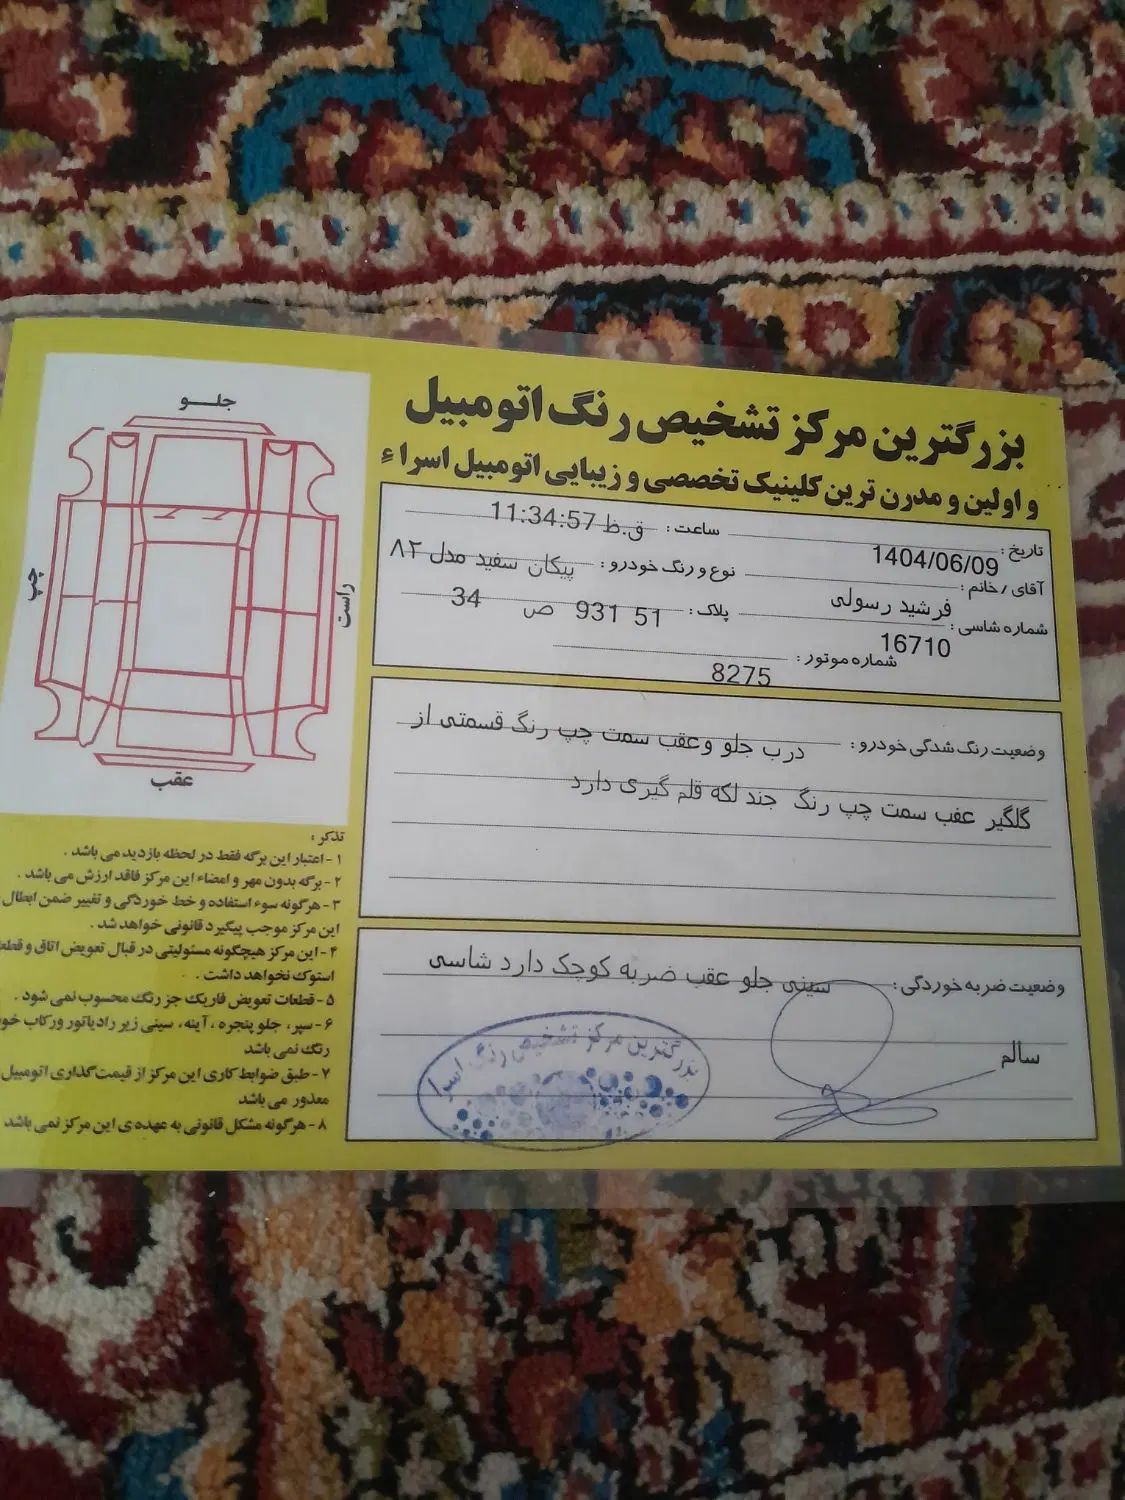 بزرگترین مرکز تشخیص رنگ اتومبیل
و اولین و مدرن ترین کلینیک تخصصی و زیبایی اتومبیل اسراء
تاریخ : 1404/06/09 ساعت : 11:34:57 ق.ظ
آقای / خانم : فرشید رسولی نوع و رنگ خودرو : پیکان سفید مدل ۸۲
شماره شاسی : 16710 پلاک : 51 931 ص 34
شماره موتور : 8275
وضعیت رنگ شدگی خودرو : درب جلو وعقب سمت چپ رنگ قسمتی از
گلگیر عقب سمت چپ رنگ جند لکه قلم گیری دارد
وضعیت ضربه خوردگی : سینی جلو عقب ضربه کوچک دارد شاسی
سالم
بزرگترین مرکز تشخیص رنگ اسرا
جلــو
راست
چپ
عقب
تذکر :
۱- اعتبار این برگه فقط در لحظه بازدید می باشد .
۲- برگه بدون مهر و امضاء این مرکز فاقد ارزش می باشد .
۳- هرگونه سوء استفاده و خط خوردگی و تغییر ضمن ابطال
این مرکز موجب پیگیرد قانونی خواهد شد .
۴- این مرکز هیچگونه مسئولیتی در قبال تعویض اتاق و قطع
استوک نخواهد داشت .
۵- قطعات تعویض فابریک جز رنگ محسوب نمی شود .
۶- سپر، جلو پنجره ، آینه، سینی زیر رادیاتور ورکاب خو
رنگ نمی باشد
۷- طبق ضوابط کاری این مرکز از قیمت گذاری اتومبیل
معذور می باشد
۸- هرگونه مشکل قانونی به عهده ی این مرکز نمی باشد